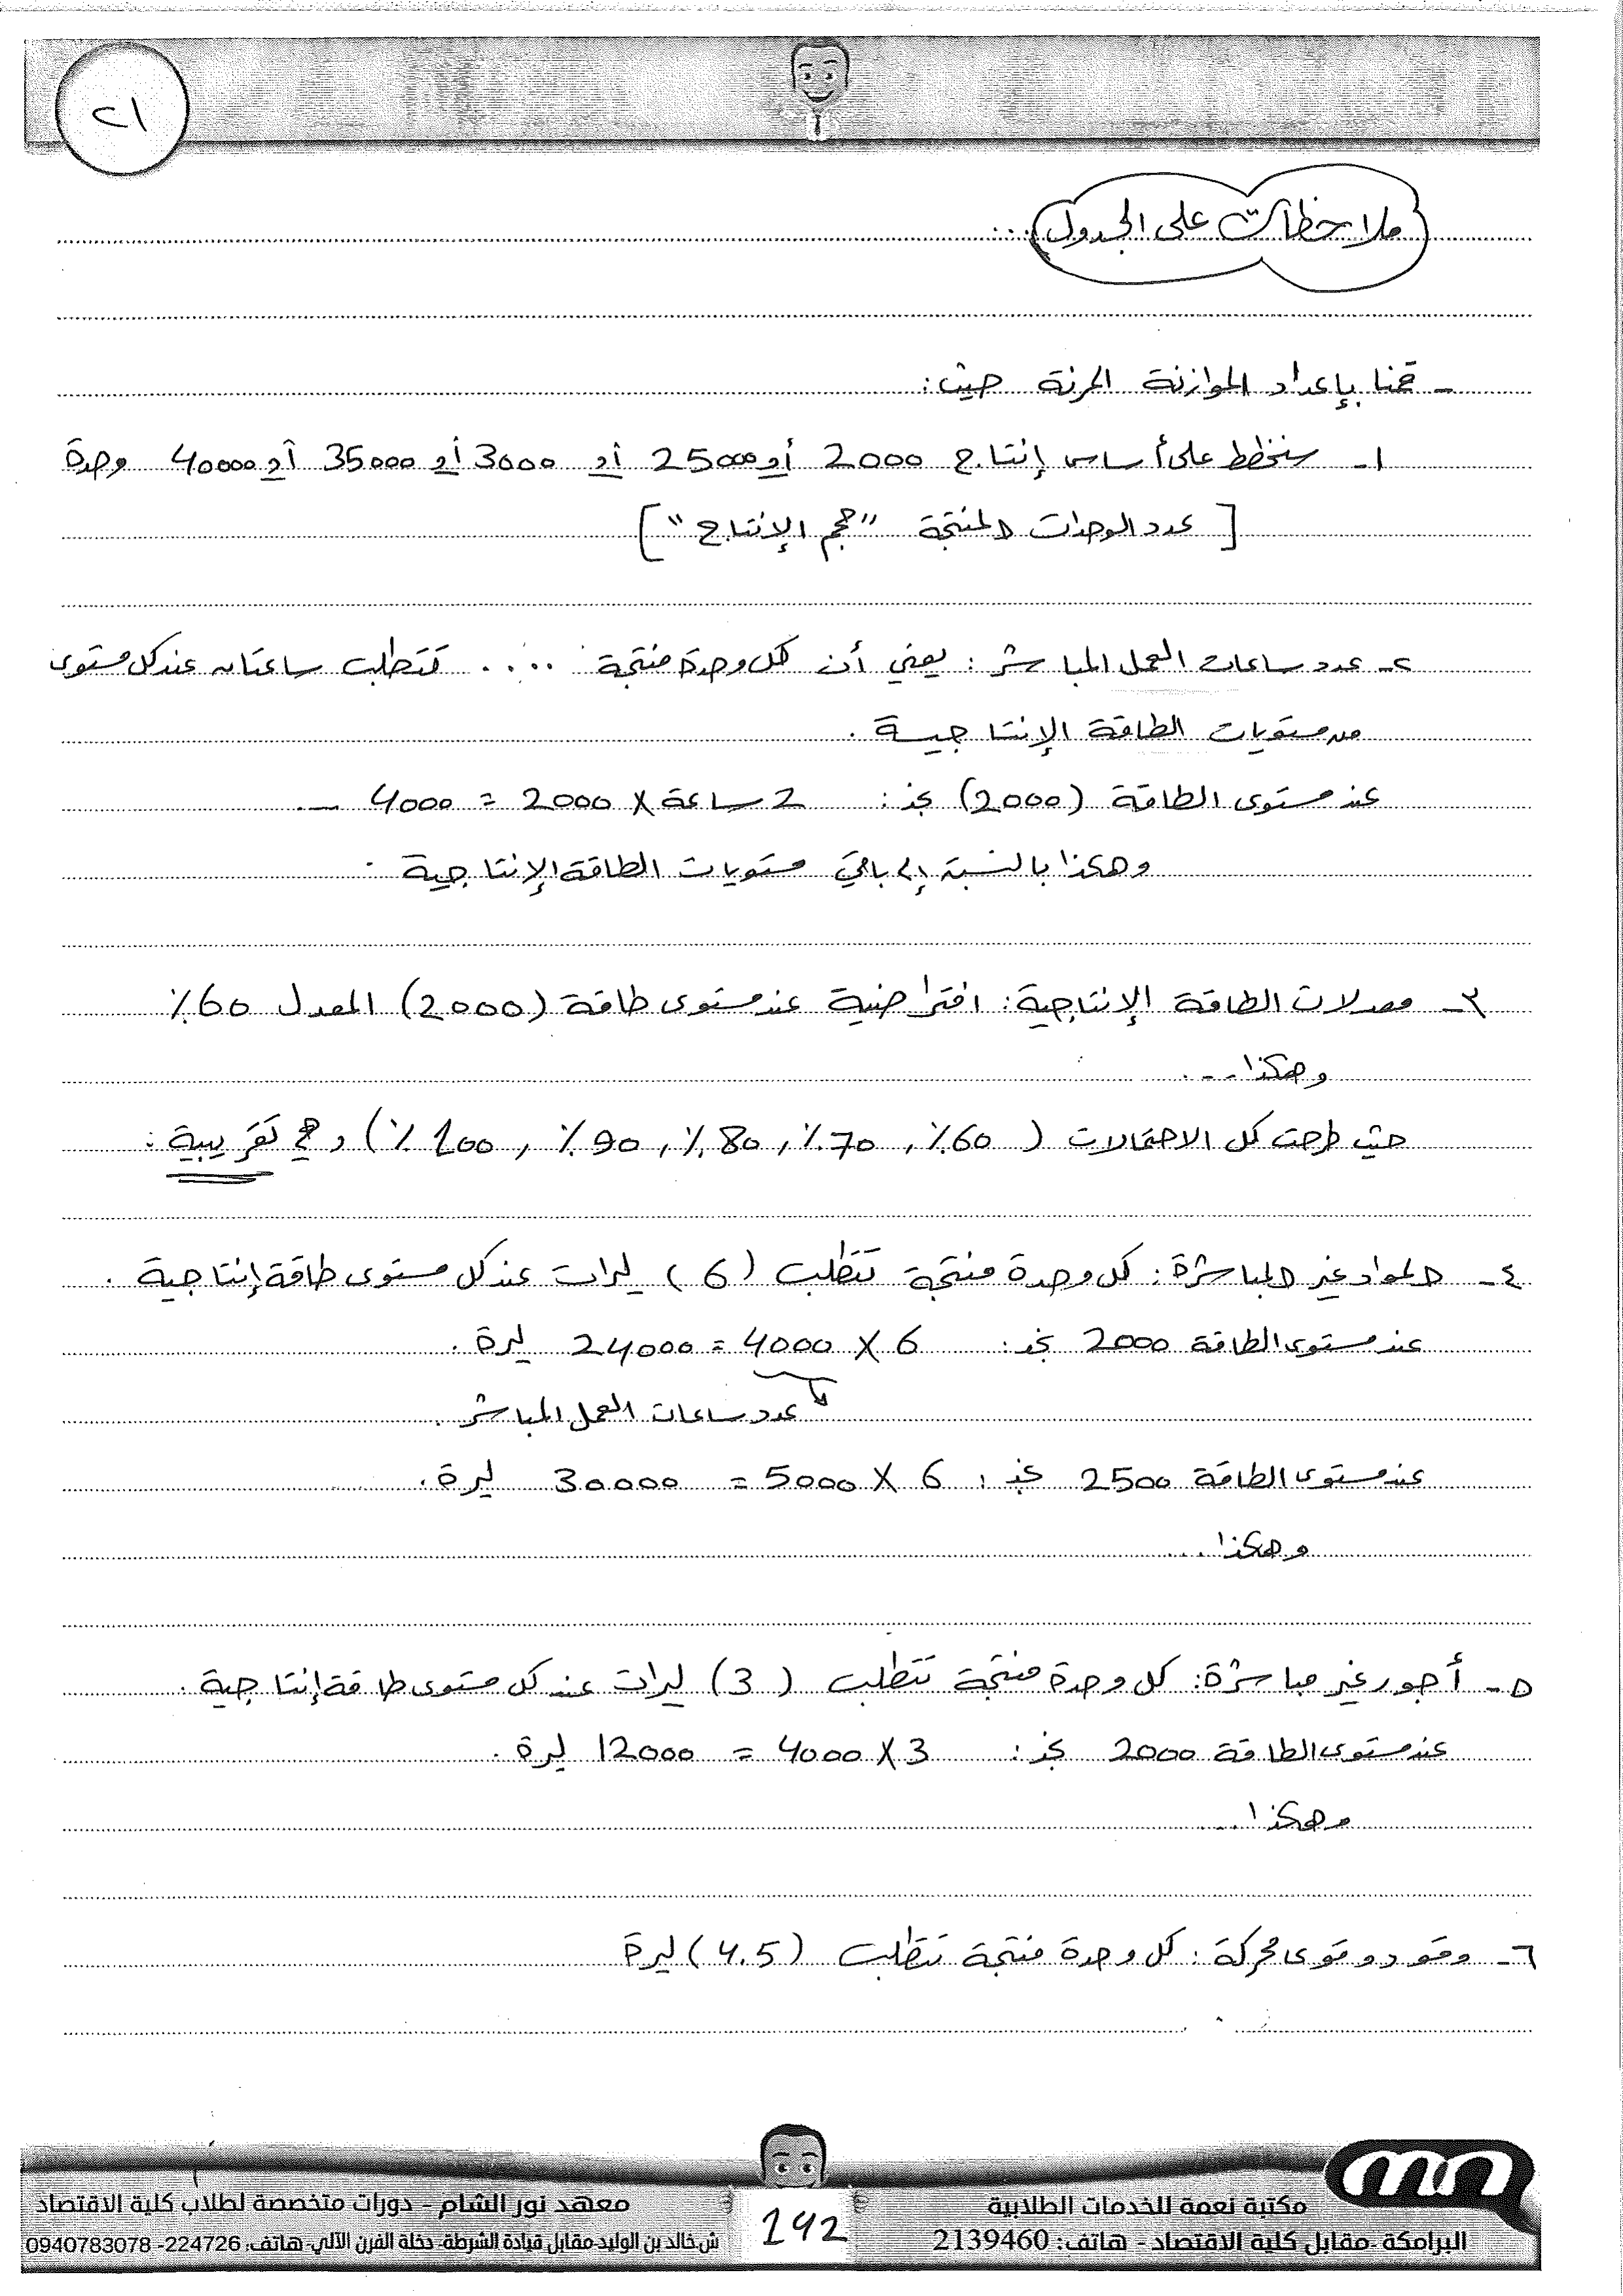 ١٢
ملاحظات على الجدول ...
- قمنا بإعداد الموازنة المرنة حيث:
١- سنخطط على أساس إنتاج 2000 أو 25000 أو 3000 أو 35000 أو 40000 وحدة
[عدد الوحدات المنتجة "حجم الإنتاج"]
٢- عدد ساعات العمل المباشر: يعني أن كل وحدة منتجة .... تتطلب ساعتان عند كل مستوى
من مستويات الطاقة الإنتاجية.
عند مستوى الطاقة (2000) نجد: 2 ساعة × 2000 = 4000 ...
وهكذا بالنسبة إلى باقي مستويات الطاقة الإنتاجية.
٣- معدلات الطاقة الإنتاجية: افتراضية عند مستوى طاقة (2000) المعدل 60%
وهكذا ...
حيث طرحت كل الاحتمالات (60%, 70%, 80%, 90%, 100%) وهي تقريبية:
٤- المواد غير المباشرة: كل وحدة منتجة تتطلب (6) ليرات عند كل مستوى طاقة إنتاجية.
عند مستوى الطاقة 2000 نجد: 6 × 4000 = 24000 ليرة.
عدد ساعات العمل المباشر.
عند مستوى الطاقة 2500 نجد: 6 × 5000 = 30000 ليرة.
وهكذا ...
٥- أجور غير مباشرة: كل وحدة منتجة تتطلب (3) ليرات عند كل مستوى طاقة إنتاجية.
عند مستوى الطاقة 2000 نجد: 3 × 4000 = 12000 ليرة.
وهكذا ...
٦- وقود وقوى محركة: كل وحدة منتجة تتطلب (4.5) ليرة
مكتبة نعمة للخدمات الطلابية
البرامكة -مقابل كلية الاقتصاد - هاتف: 2139460
192
معهد نور الشام - دورات متخصصة لطلاب كلية الاقتصاد
ش.خالد بن الوليد-مقابل قيادة الشرطة- دخلة الفرن الآلي- هاتف: 224726- 0940783078